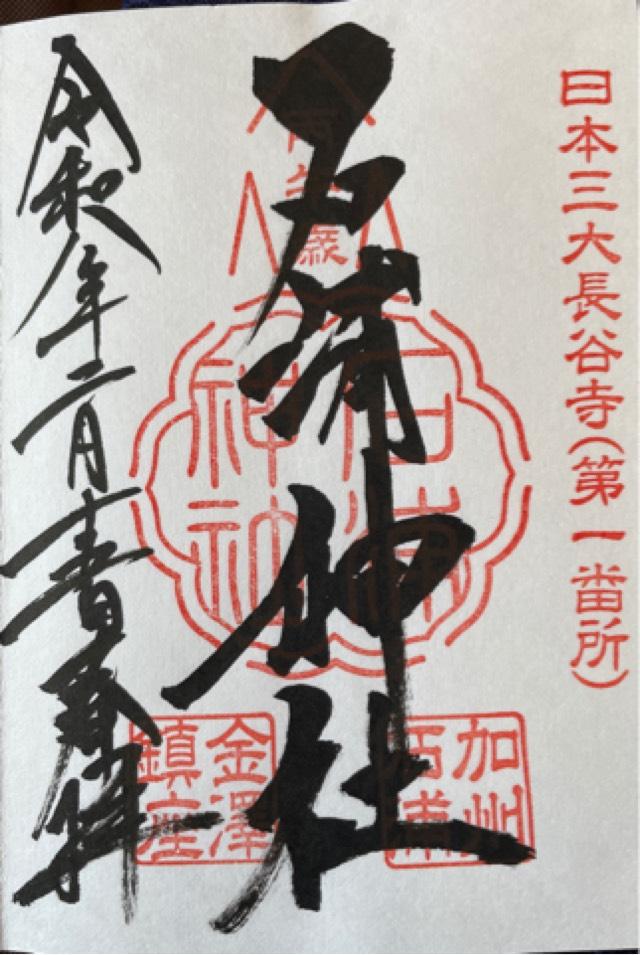 日本三大長谷寺(第一番所)
石浦神社
石浦
神社
加州
石浦
金澤
鎮座
令和 年二月 奉拝